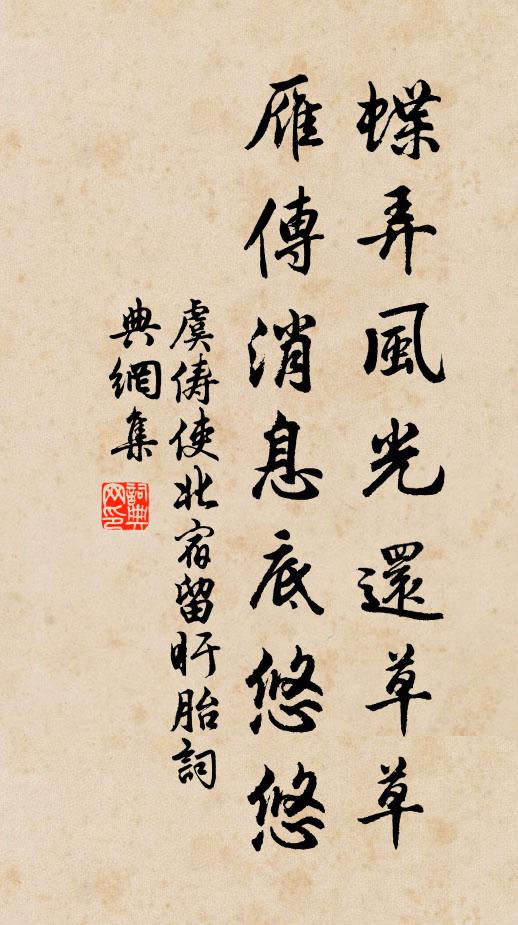 蝶弄風光還草草
雁傳消息底悠悠
虞儔使北宿留盱胎詞
典網集
詞典
网印